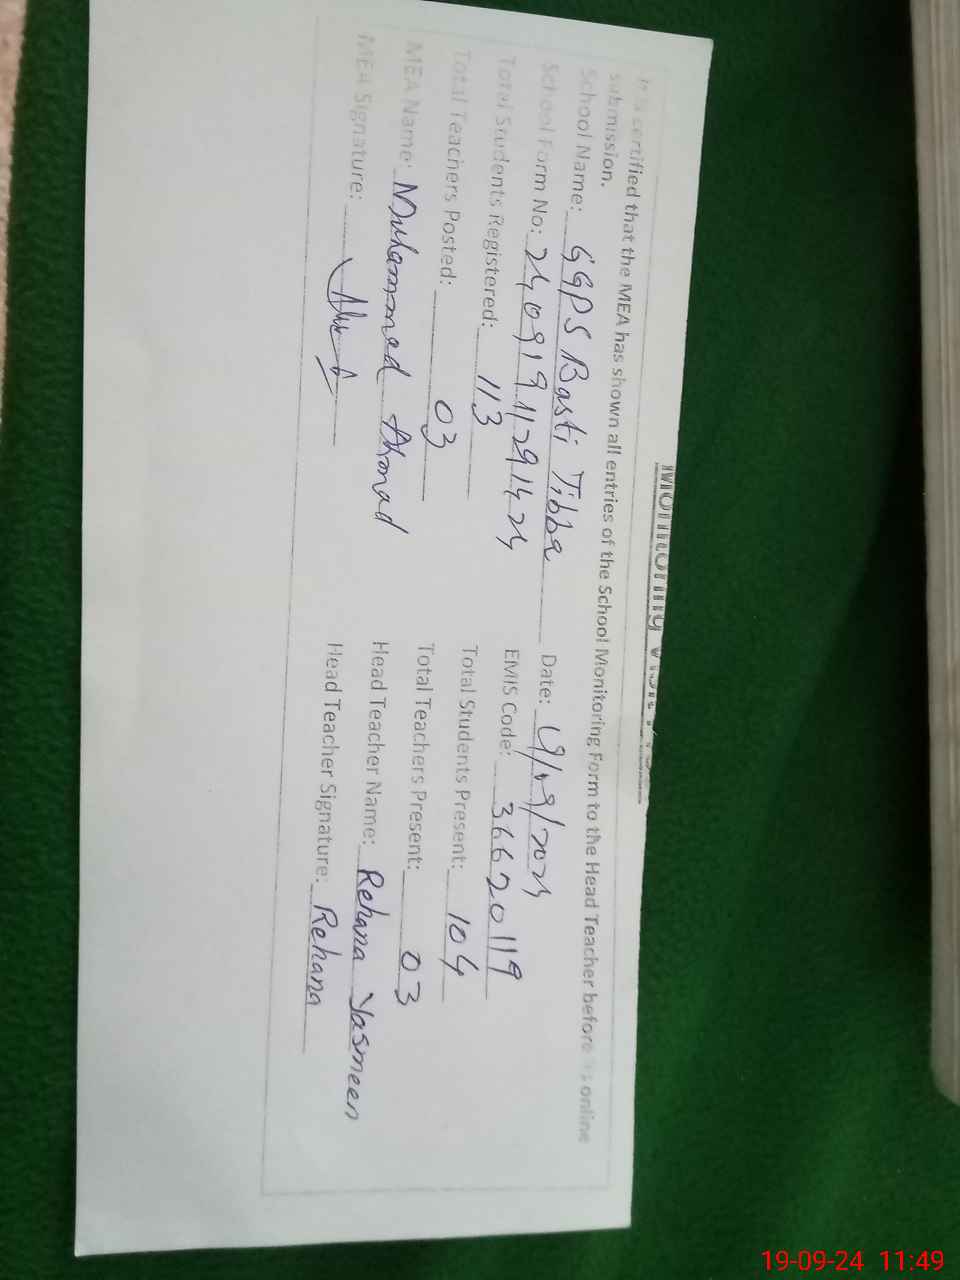 Monitoring Visit
It is certified that the MEA has shown all entries of the School Monitoring Form to the Head Teacher before its online
submission.
School Name: GGPS Basti Tibba
Date: 19/09/2024
School Form No: 24091911291424
EMIS Code: 36620119
Total Students Registered: 113
Total Students Present: 104
Total Teachers Posted: 03
Total Teachers Present: 03
MEA Name: Muhammad Ahmad
Head Teacher Name: Rehana Yasmeen
MEA Signature:
Head Teacher Signature: Rehana
19-09-24 11:49